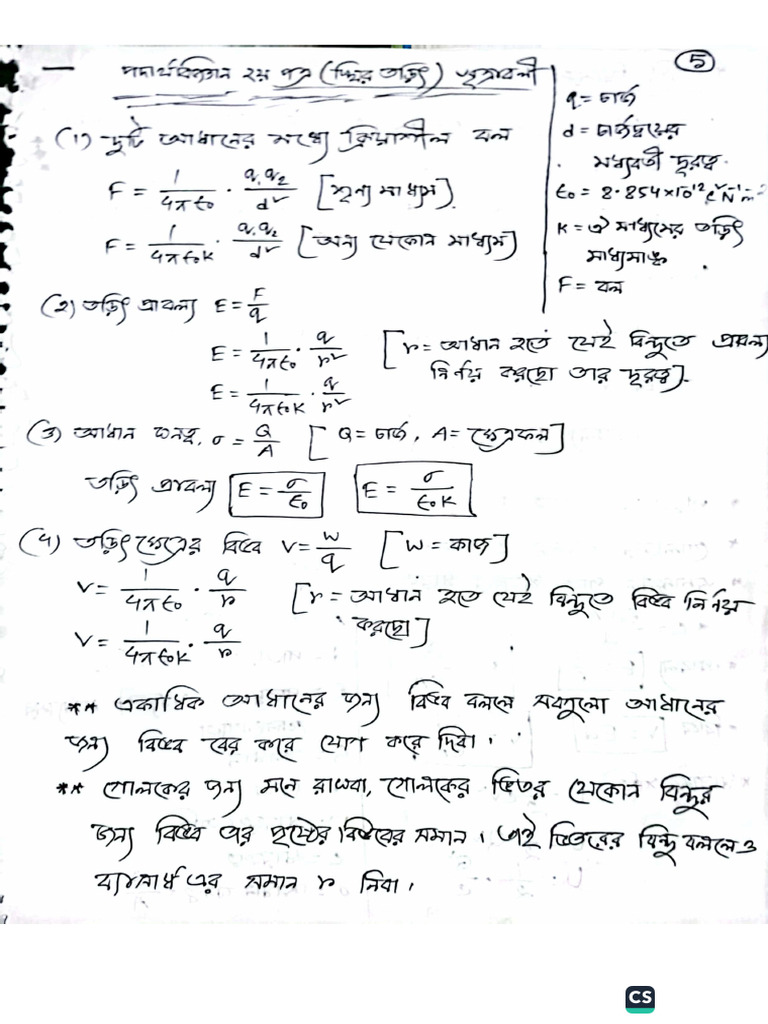 5
পদার্থবিজ্ঞান ২য় পত্র (স্থির তড়িৎ) সূত্রাবলী
q = চার্জ
d = চার্জদ্বয়ের
মধ্যবর্তী দূরত্ব
ϵ₀ = 8.854×10⁻¹² C²N⁻¹m⁻²
K = ঐ মাধ্যমের তড়িৎ
মাধ্যমাঙ্ক
F = বল
(১) দুটি আধানের মধ্যে ক্রিয়াশীল বল
F = 1/4πϵ₀ · q₁q₂/d² [শূন্য মাধ্যম]
F = 1/4πϵ₀K · q₁q₂/d² [অন্য যেকোন মাধ্যম]
(২) তড়িৎ প্রাবল্য E = F/q
E = 1/4πϵ₀ · q/r² [r = আধান হতে যেই বিন্দুতে প্রাবল্য
নির্ণয় করছো তার দূরত্ব]
E = 1/4πϵ₀K · q/r²
(৩) আধান ঘনত্ব, σ = Q/A [Q = চার্জ, A = ক্ষেত্রফল]
তড়িৎ প্রাবল্য E = σ/ϵ₀ E = σ/ϵ₀K
(৪) তড়িৎক্ষেত্রের বিভব V = W/q [W = কাজ]
V = 1/4πϵ₀ · q/r [r = আধান হতে যেই বিন্দুতে বিভব নির্ণয়
করছো]
V = 1/4πϵ₀K · q/r
** একাধিক আধানের জন্য বিভব বললে সবগুলো আধানের
জন্য বিভব বের করে যোগ করে দিবা।
** গোলকের জন্য মনে রাখবা, গোলকের ভিতর যেকোন বিন্দুর
জন্য বিভব এর পৃষ্ঠের বিভবের সমান। তাই ভিতরের বিন্দু বললেও
ব্যাসার্ধ এর সমান r নিবা।
CS